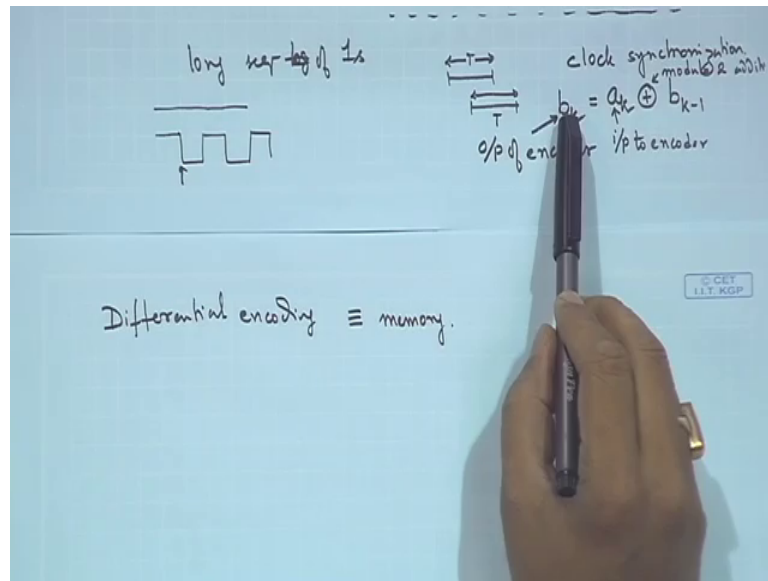 long seq of 1s
T
clock synchronization
modulo 2 addit
T
bk = ak ⊕ bk-1
O/P of encoder i/p to encoder
© CET
I.I.T. KGP
Differential encoding ≡ memory.